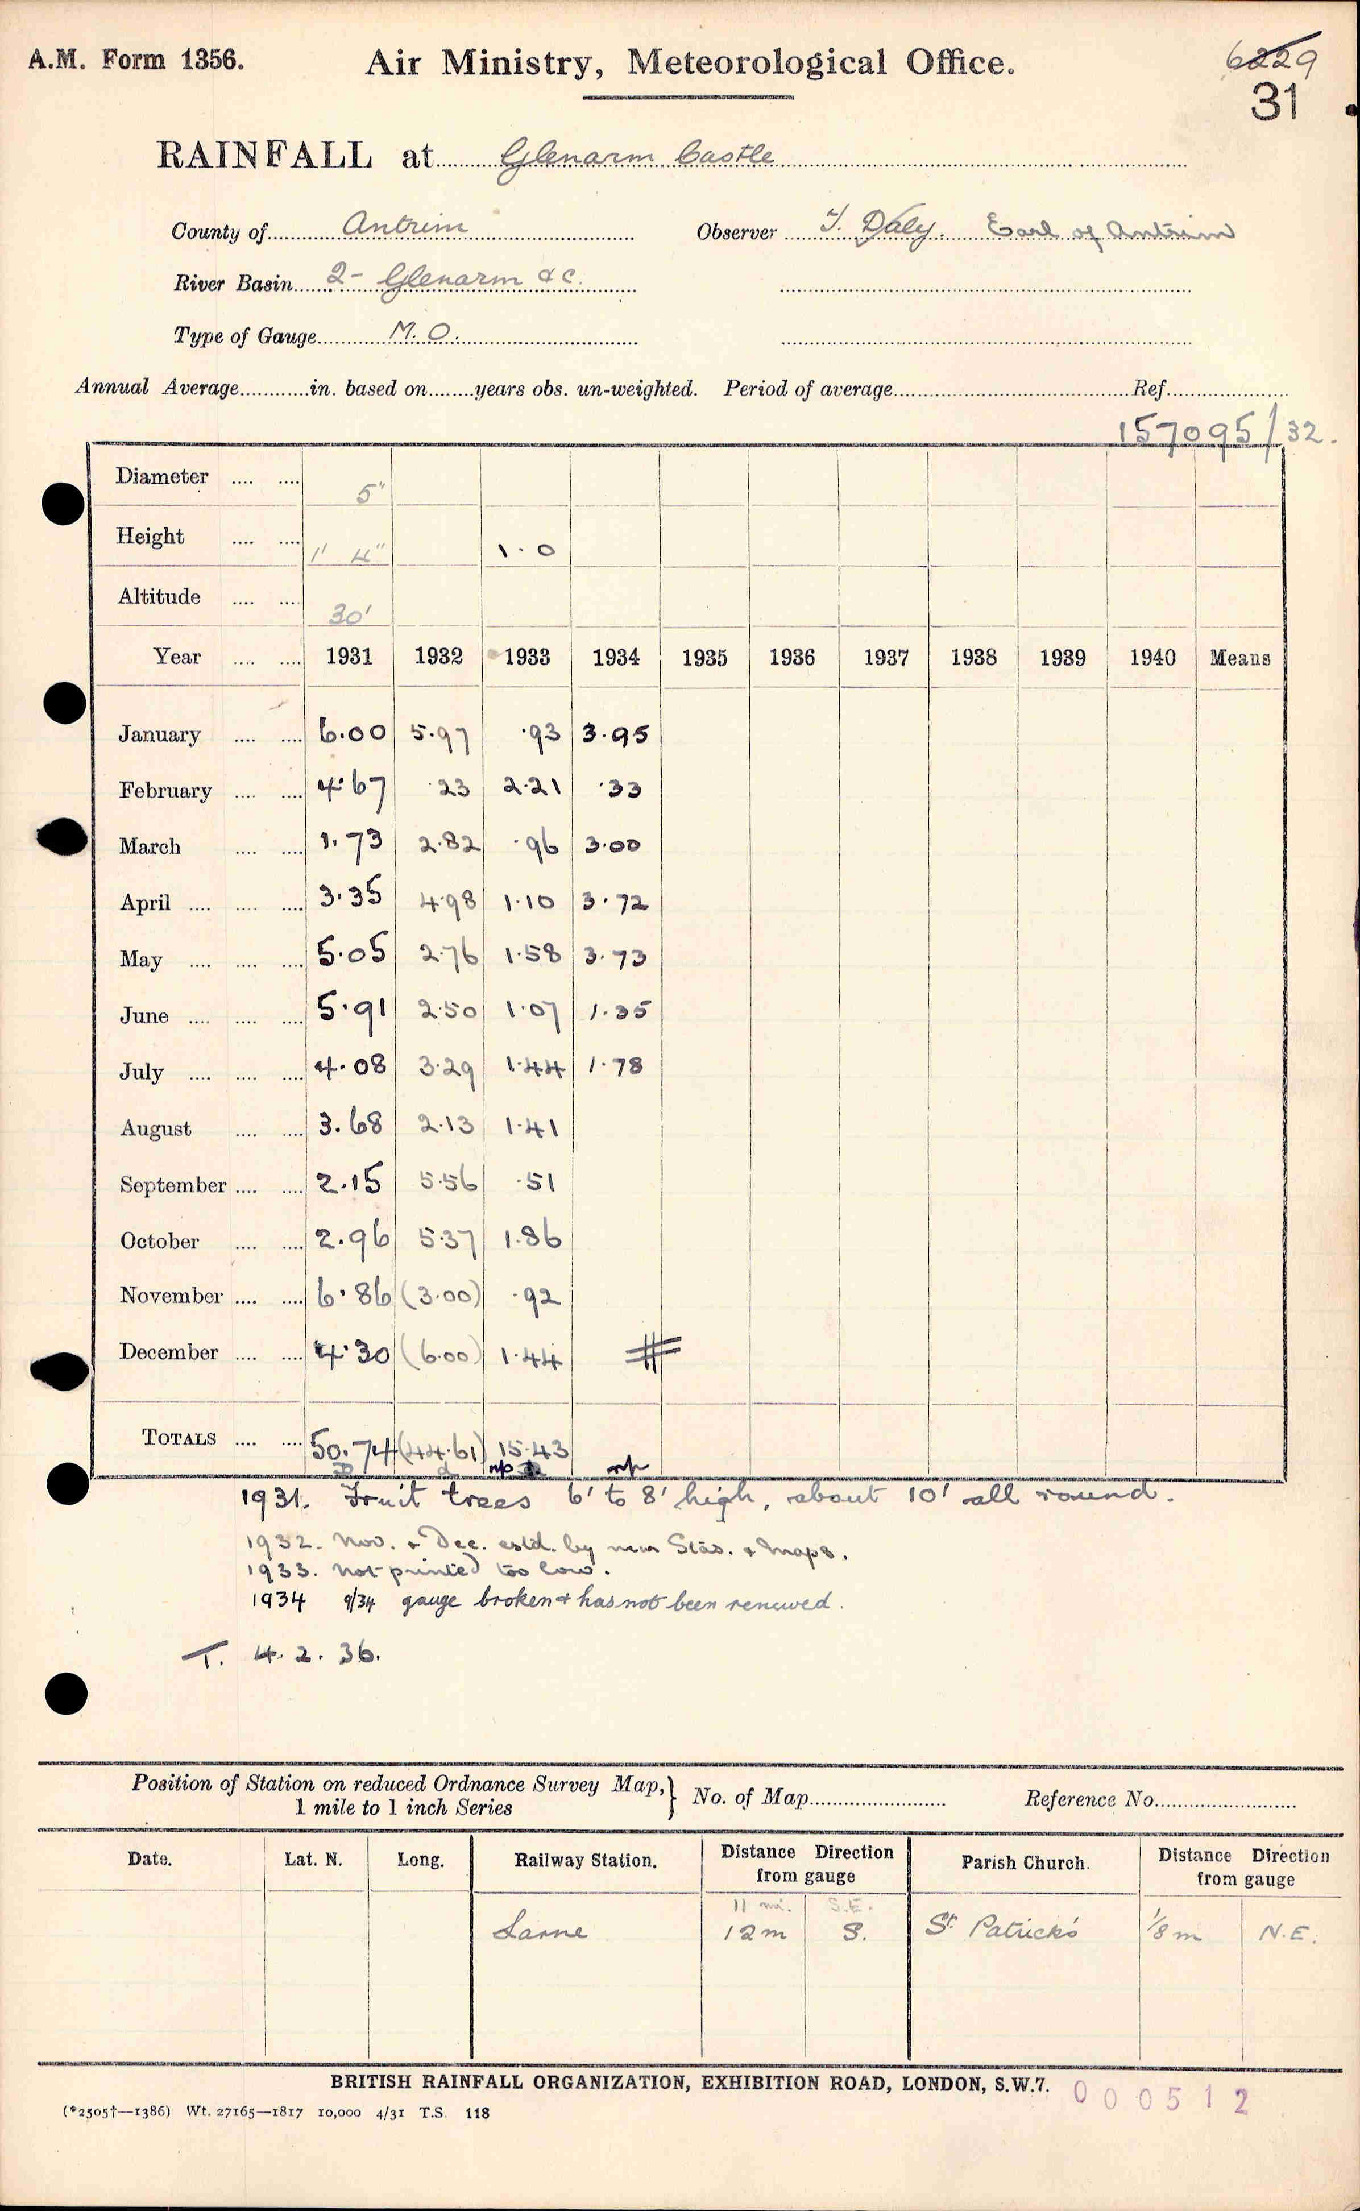 A.M. Form 1356.
Air Ministry, Meteorological Office.
6229
31
RAINFALL at Glenarm Castle
County of Antrim Observer T. Daly. Earl of Antrim
River Basin 2- Glenarm &c.
Type of Gauge M.O.
Annual Average............in. based on........years obs. un-weighted. Period of average........................Ref................
157095/32.
Diameter .... .... 5"
Height .... .... 1' 4" 1·0
Altitude .... .... 30'
Year .... .... 1931 1932 1933 1934 1935 1936 1937 1938 1939 1940 Means
January .... .... 6.00 5.97 .93 3.95
February .... .... 4.67 .23 2.21 .33
March .... .... 1.73 2.82 .96 3.00
April .... .... .... 3.35 4.98 1.10 3.72
May .... .... .... 5.05 2.76 1.58 3.73
June .... .... .... 5.91 2.50 1.07 1.35
July .... .... .... 4.08 3.29 1.44 1.78
August .... .... 3.68 2.13 1.41
September .... .... 2.15 5.56 .51
October .... .... 2.96 5.37 1.86
November .... .... 6.86 (3.00) .92
December .... .... 4.30 (6.00) 1.44
TOTALS .... .... 50.74 (44.61) 15.43
np np
1931. Fruit trees 6' to 8' high, about 10' all round.
1932. Nov. + Dec. estd. by near Stas. + Maps.
1933. not printed too low.
1934 9/34 gauge broken + has not been renewed.
T. 4. 2. 36.
Position of Station on reduced Ordnance Survey Map, 1 mile to 1 inch Series } No. of Map........................ Reference No.........................
Date. Lat. N. Long. Railway Station. Distance Direction from gauge Parish Church. Distance Direction from gauge
11 mi. S.E.
Larne 12m S. St. Patrick's 1/8 m N.E.
BRITISH RAINFALL ORGANIZATION, EXHIBITION ROAD, LONDON, S.W.7.
000512
(*2505†—1386) Wt. 27165—1817 10,000 4/31 T.S. 118